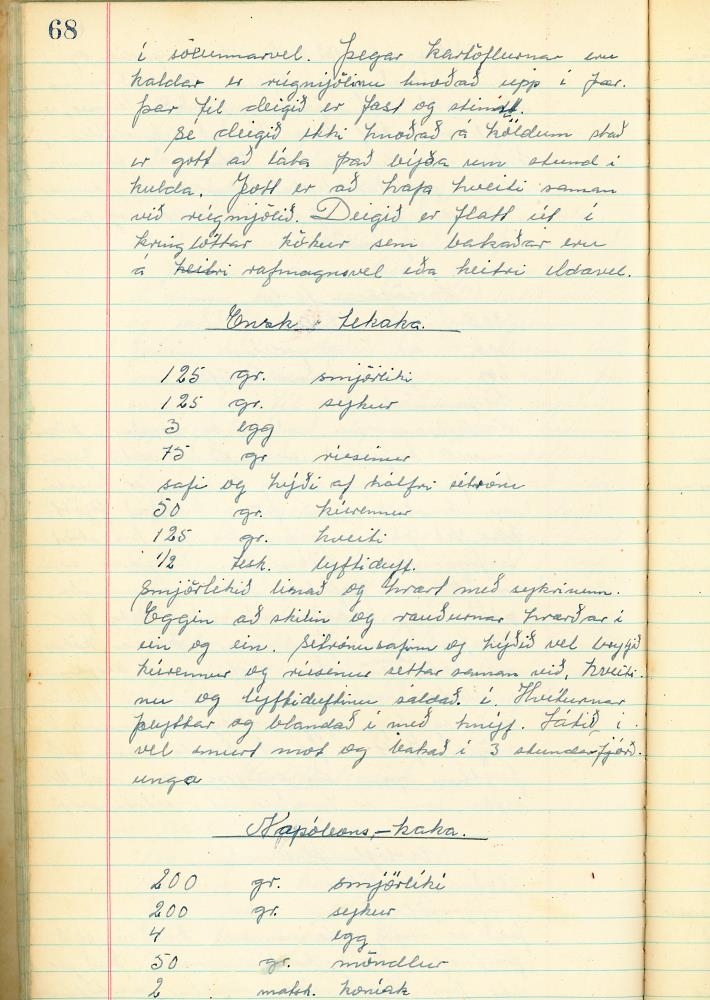 68
í söxunnarvel. Þegar kartöflurnar eru
kaldar er rúgmjölinu hnoðað upp í þær.
þar til deigið er fast og stinnt.
Sé deigið ekki hnoðað á köldum stað
er gott að láta það bíða um stund í
kulda. Gott er að hafa hveiti saman
við rúgmjölið. Deigið er flatt út í
kringlóttar kökur sem bakaðar eru
á heitri rafmagnsvel eða heitri eldavel.
Ensk tekaka.
125 gr. smjörlíki
125 gr. sykur
3 egg
75 gr rúsínur
safi og hýði af hálfri sítrónu
50 gr. kúrennur
125 gr. hveiti
1/2 tesk. lyftiduft.
Smjörlíkið linað og hrært með sykrinum.
Eggin að skilin og rauðurnar hrærðar í
ein og ein. Sítrónusafinn og hýðið vel
kúrennur og rúsínur settar saman við, hveiti
nu og lyftiduftinu sáldað í Hvíturnar
þeyttar og blandað í með hníf. Látið í
vel smurt mót og bakað í 3 stundarfjórð-
unga
Napóleons-kaka.
200 gr. smjörlíki
200 gr. sykur
4 egg
50 gr. möndlur
2 matsk. koníak